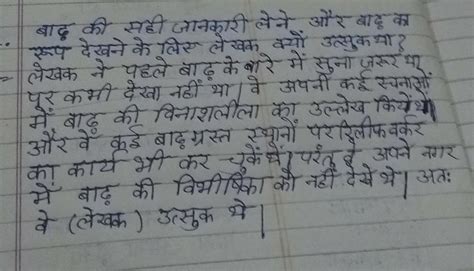 बाढ़ की सही जानकारी लेने और बाढ़ का
रूप देखने के लिए लेखक क्यों उत्सुक था?
लेखक ने पहले बाढ़ के बारे में सुना जरूर था
पर कभी देखा नहीं था। वे अपनी कई रचनाओं
में बाढ़ की विनाशलीला का उल्लेख किये थे।
और वे कई बाढ़ग्रस्त स्थानों पर रिलीफवर्कर
का कार्य भी कर चुके थे। परंतु वे अपने नगर
में बाढ़ की विभीषिका को नहीं देखे थे। अतः
वे (लेखक) उत्सुक थे।